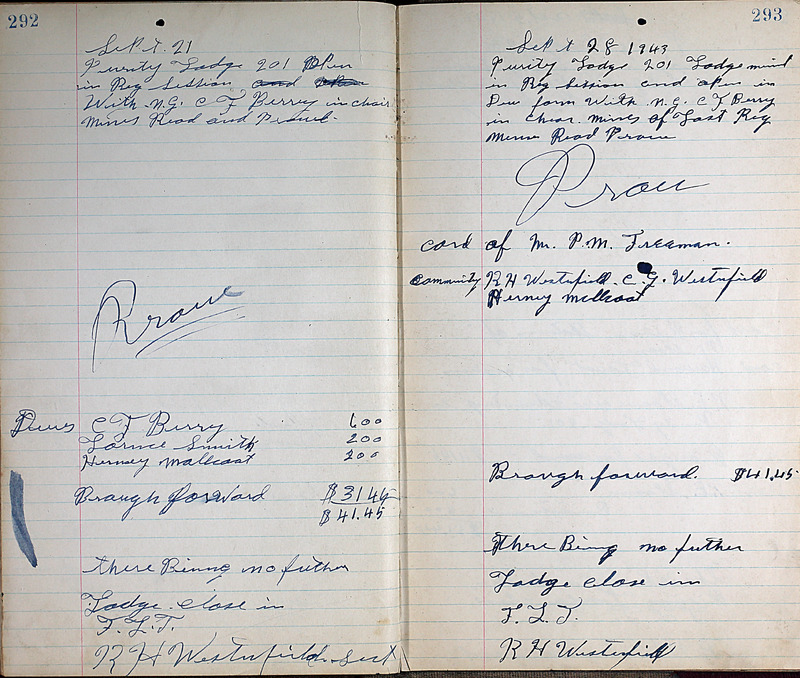 292
Sept. 21
Purity Lodge 201 Open
in Reg Session and open
With N.G. C F Berry in chair
mines Read and Prout.
Proue
Dues C F Berry 600
Lornce Smith 200
Herney mallcoat 200
Brough forward $31.45
$41.45
there Being no futher
Lodge. close in
F. L. T.
R H Westerfield. sect
293
Sept 28 1943
Purity Lodge 201 Lodge mind
in Reg Session and open in
Due form With N.G. C F Berry
in chear. mines of Last Reg
Meine Read Prove
Prou
card of Mr. P.M. Freeman.
Community R H Westerfield. C. G. Westerfield
Herney mallcoat
Brough forward. $41.45
There Being no futher
Lodge close in
F. L. T.
R H Westerfield